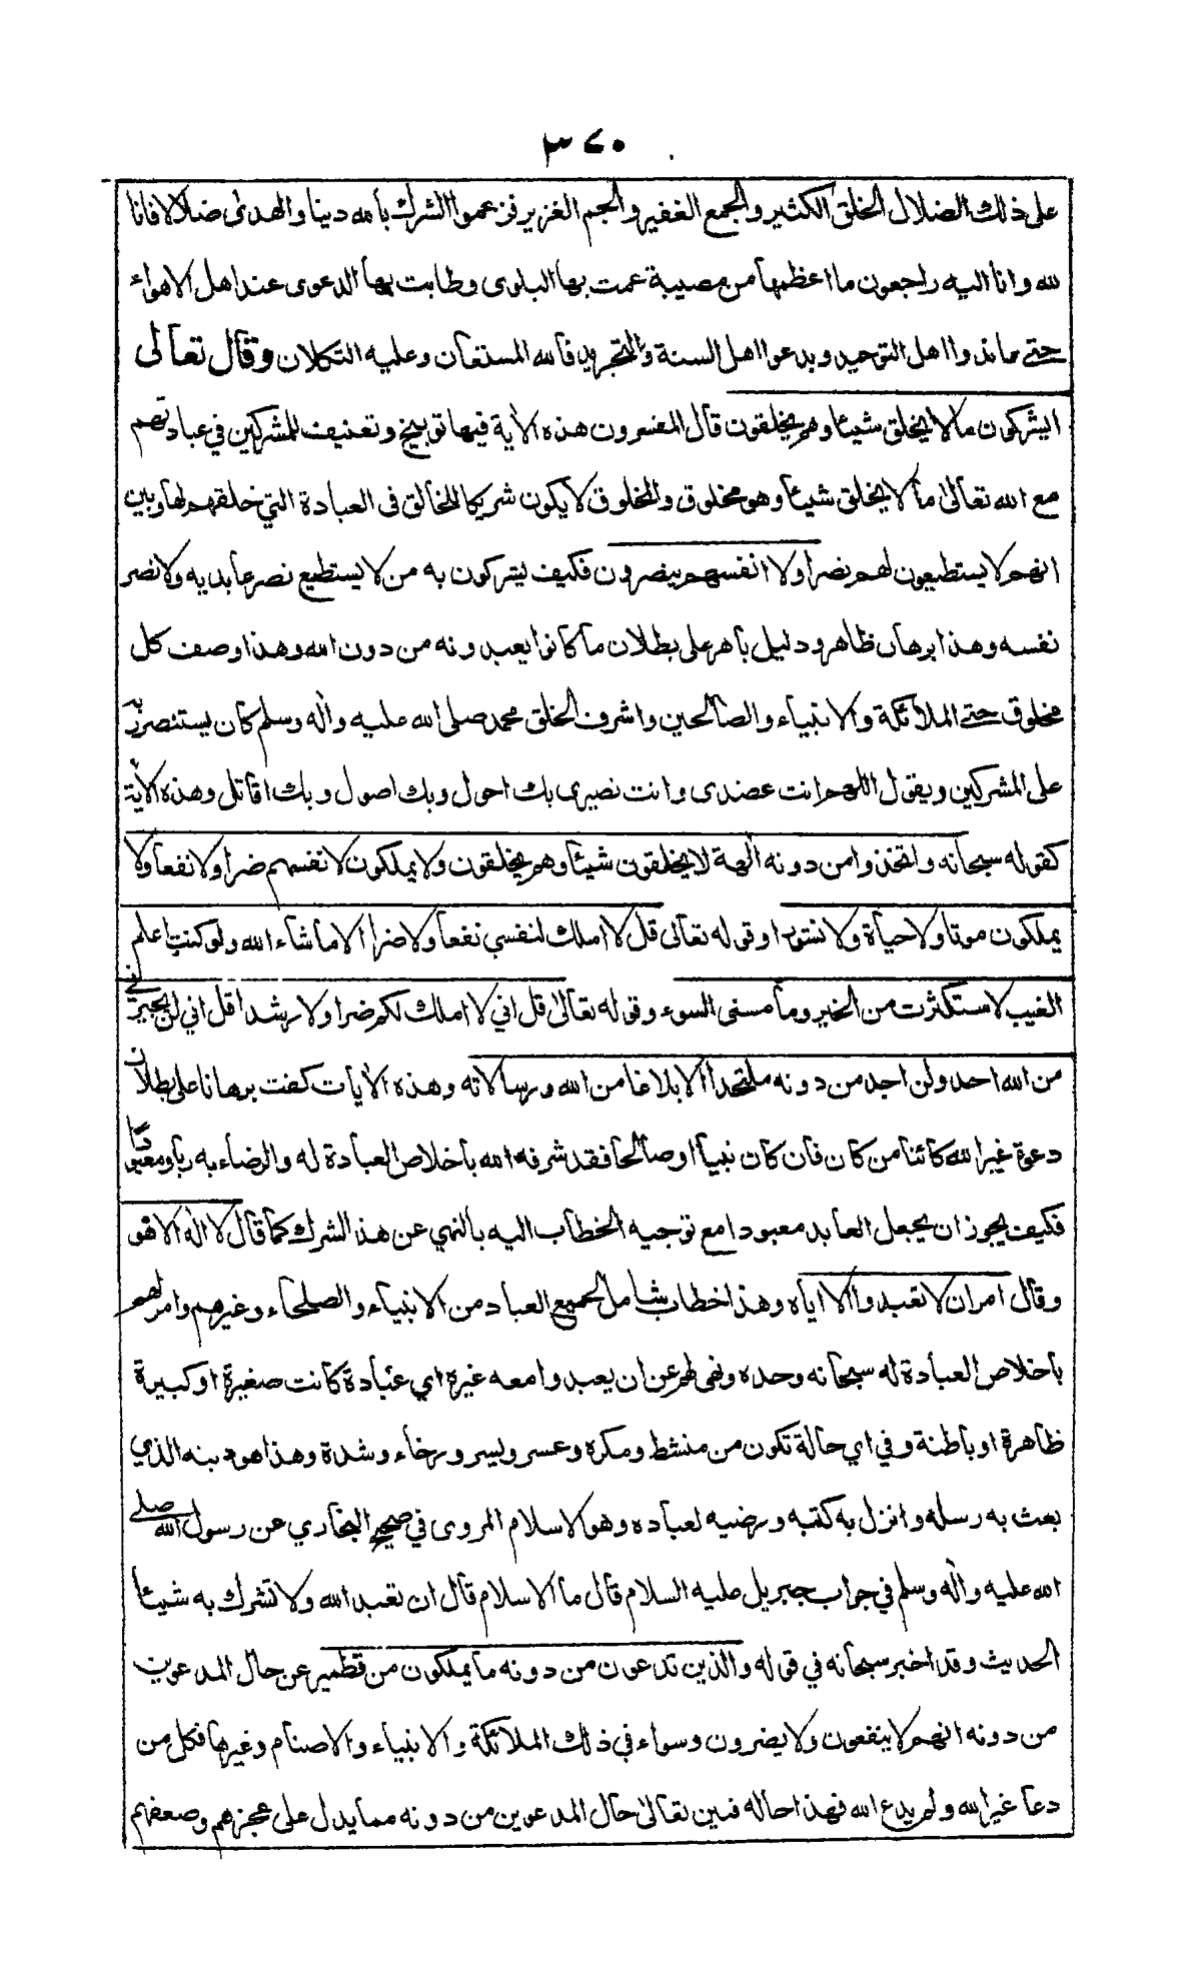 ٣٧٠
على ذلك الضلال الخلق الكثير والجمع الغفير والجم الغزير فزعموا الشرك بالله دينا والهدى ضلالا فانا
لله وانا اليه راجعون ما اعظمها من مصيبة عمت بها البلوى وطابت بها الدعوى عند اهل الاهواء
حتى عاندوا اهل التوحيد وبدعوا اهل السنة والتجريد فالله المستعان وعليه التكلان وقال تعالى
ايشركون مالا يخلق شيئا وهم يخلقون قال المفسرون هذه الاية فيها توبيخ وتعنيف للمشركين في عبادتهم
مع الله تعالى ما لا يخلق شيئا وهو مخلوق والمخلوق لا يكون شريكا للخالق فى العبادة التي خلقهم لها وبين
انهم لا يستطيعون لهم نصرا ولا انفسهم ينصرون فكيف يشركون به من لا يستطيع نصر عابديه ولا نصر
نفسه وهذا برهان ظاهر ودليل باهر على بطلان ما كانوا يعبدونه من دون الله وهذا وصف كل
مخلوق حتى الملائكة والانبياء والصالحين واشرف الخلق محمد صلى الله عليه واله وسلم كان يستنصر ربه
على المشركين ويقول اللهم انت عضدى وانت نصيرى بك احول وبك اصول وبك اقاتل وهذه الاية
كقوله سبحانه واتخذوا من دونه الهة لا يخلقون شيئا وهم يخلقون ولا يملكون لانفسهم ضرا ولا نفعا ولا
يملكون موتا ولا حياة ولا نشورا وقوله تعالى قل لا املك لنفسي نفعا ولا ضرا الا ما شاء الله ولو كنت اعلم
الغيب لاستكثرت من الخير وما مسنى السوء وقوله تعالى قل اني لا املك لكم ضرا ولا رشدا قل اني لن يجيرني
من الله احد ولن اجد من دونه ملتحدا الا بلاغا من الله ورسالاته وهذه الايات كفت برهانا على بطلان
دعوة غير الله كائنا من كان فان كان نبيا او صالحا فقد شرفه الله باخلاص العبادة له والرضاء به ربا ومعبودا
فكيف يجوز ان يجعل العابد معبودا مع توجيه الخطاب اليه بالنهي عن هذ الشرك كما قال لا اله الا هو
وقال امر ان لا تعبدوا الا اياه وهذا خطاب شامل لجميع العباد من الانبياء والصلحاء وغيرهم وامر لهم
باخلاص العبادة له سبحانه وحده ونهى لهم عن ان يعبدوا معه غيره اي عبادة كانت صغيرة او كبيرة
ظاهرة او باطنة وفي اي حالة تكون من منشط ومكره وعسر ويسر ورخاء وشدة وهذا هو دينه الذي
بعث به رسله وانزل به كتبه ورضيه لعباده وهو الاسلام المروى في صحيح البخاري عن رسول الله صلى
الله عليه واله وسلم في جواب جبريل عليه السلام قال ما الاسلام قال ان تعبد الله ولا تشرك به شيئا
الحديث وقد اخبر سبحانه في قوله والذين تدعون من دونه ما يملكون من قطمير عن حال المدعوين
من دونه انهم لا ينفعون ولا يضرون وسواء في ذلك الملائكة والانبياء والاصنام وغيرها فكل من
دعا غير الله ولم يدع الله فهذا حاله فبين تعالى حال المدعوين من دونه مما يدل على عجزهم وضعفهم